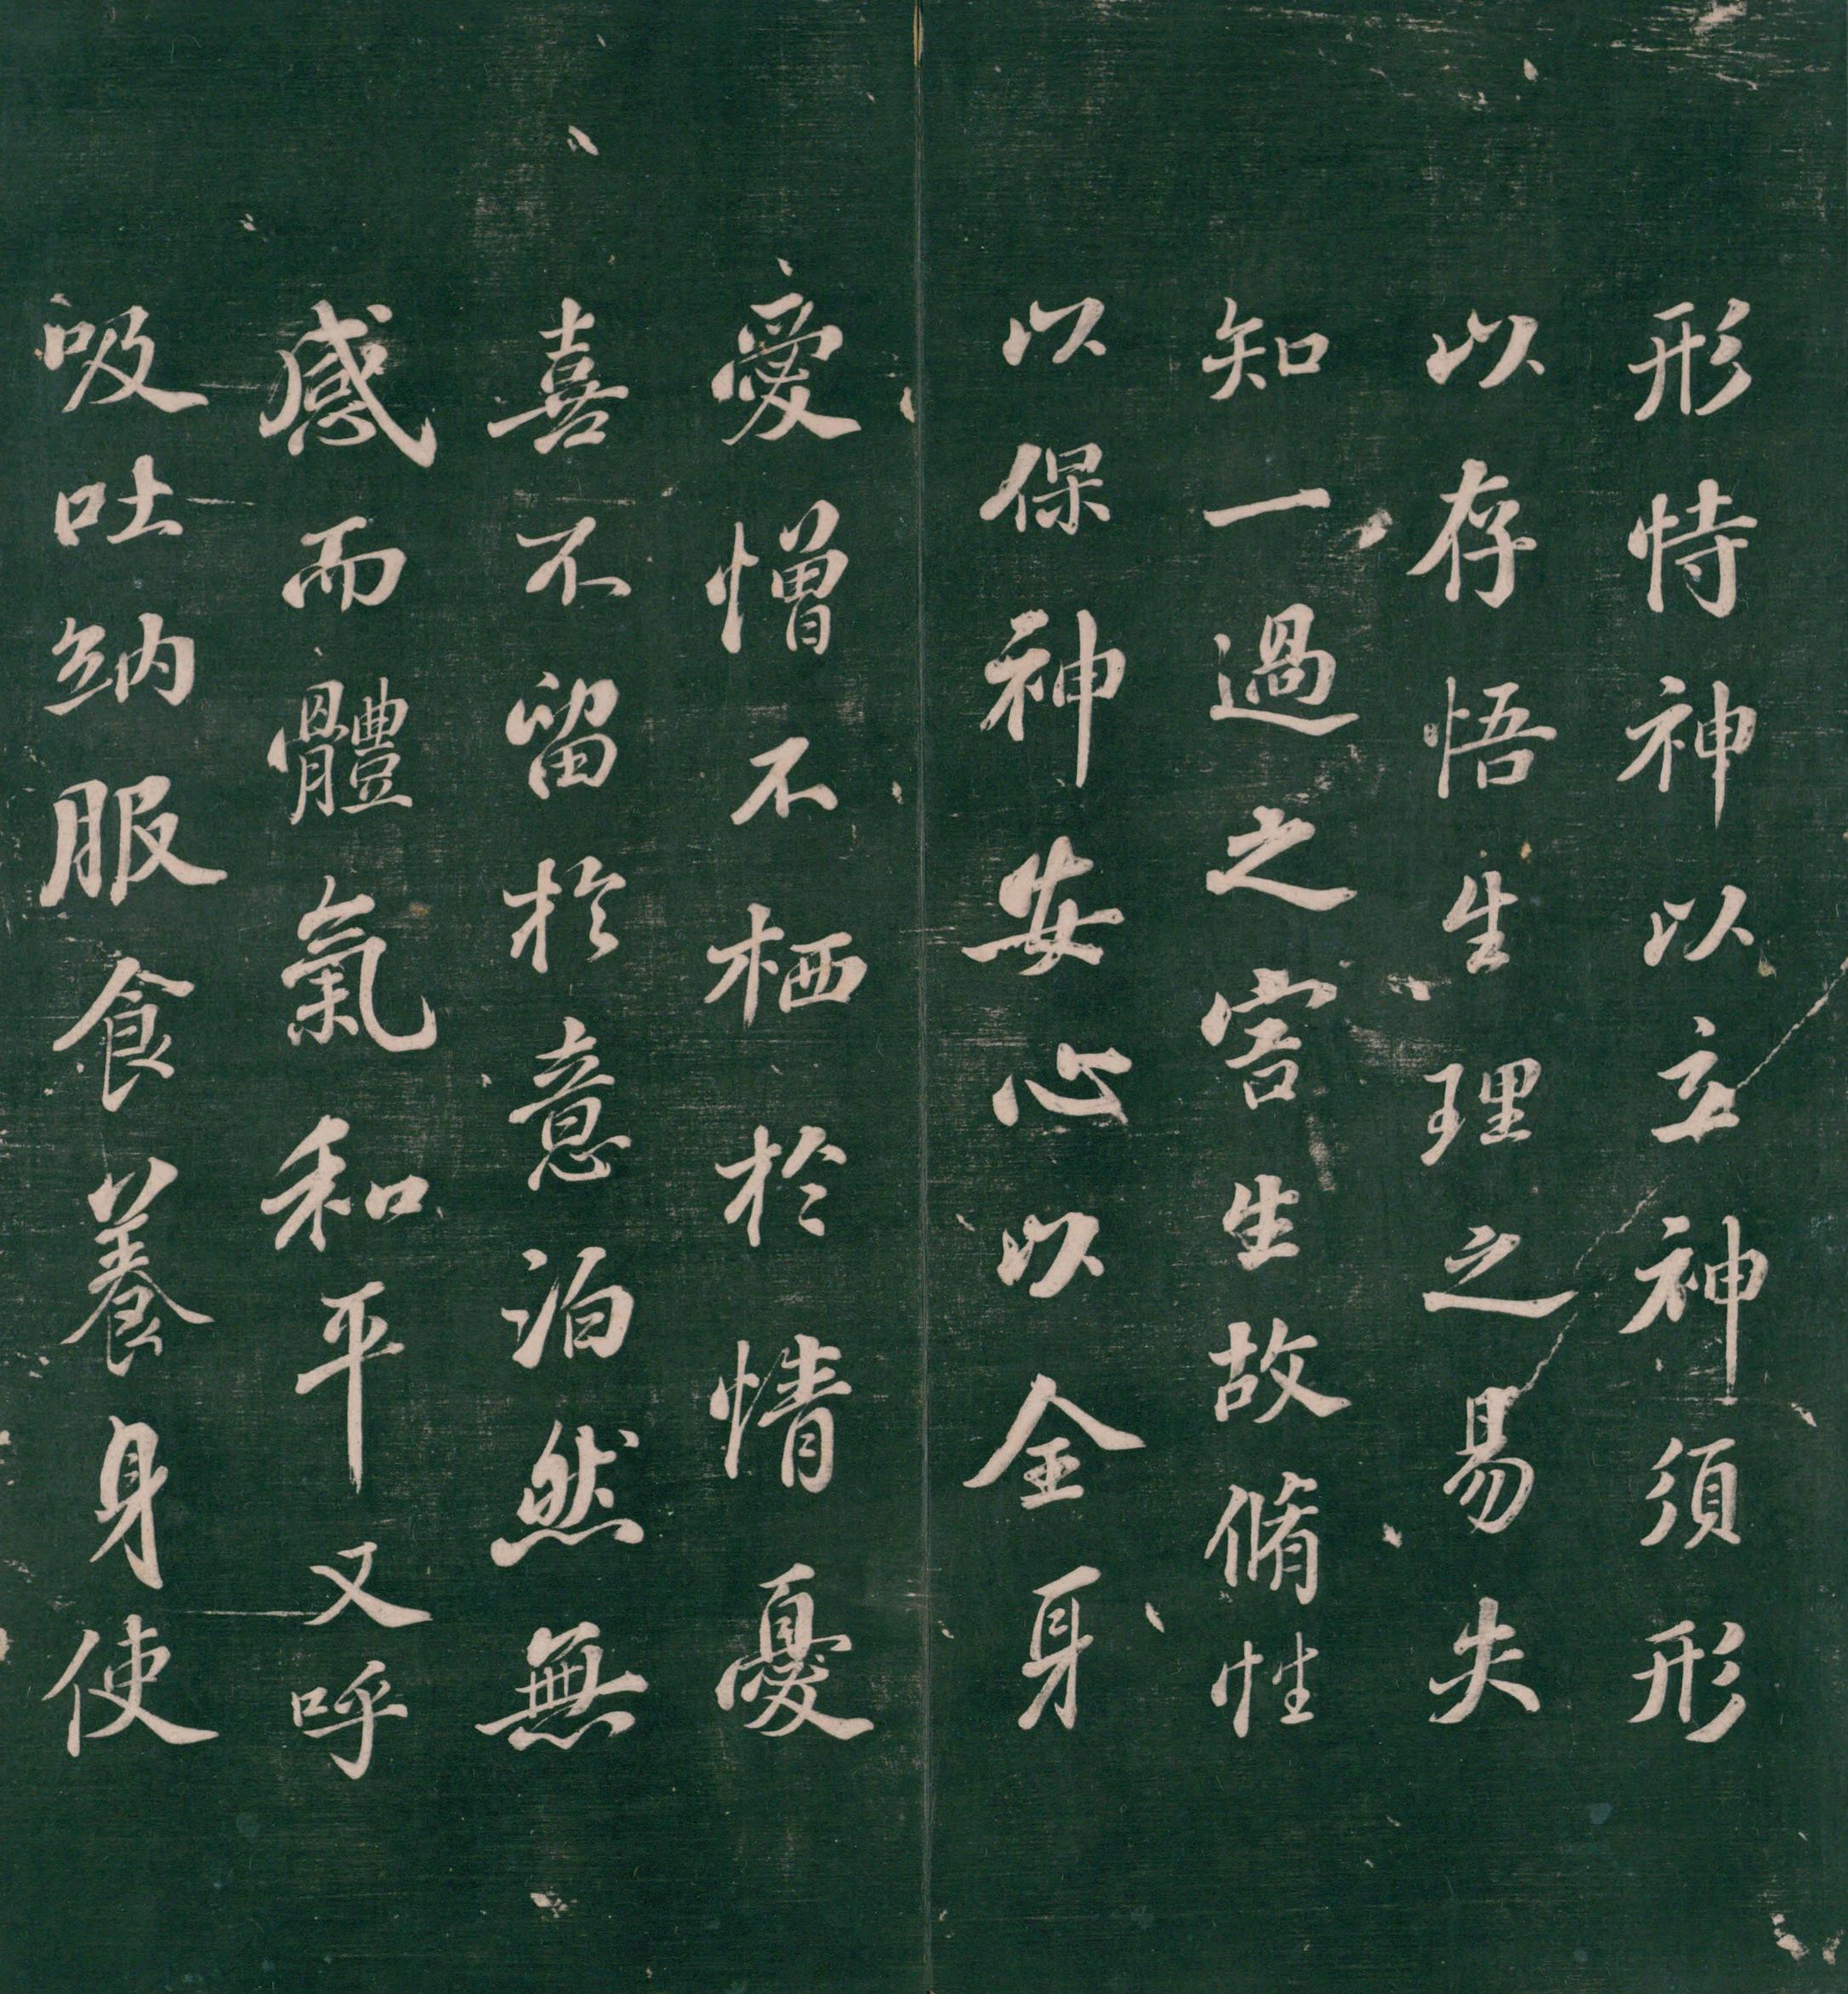 形恃神以立神須形
以存悟生理之易失
知一過之害生故脩性
以保神安心以全身
愛憎不栖於情憂
喜不留於意泊然無
感而體氣和平又呼
吸吐納服食養身使